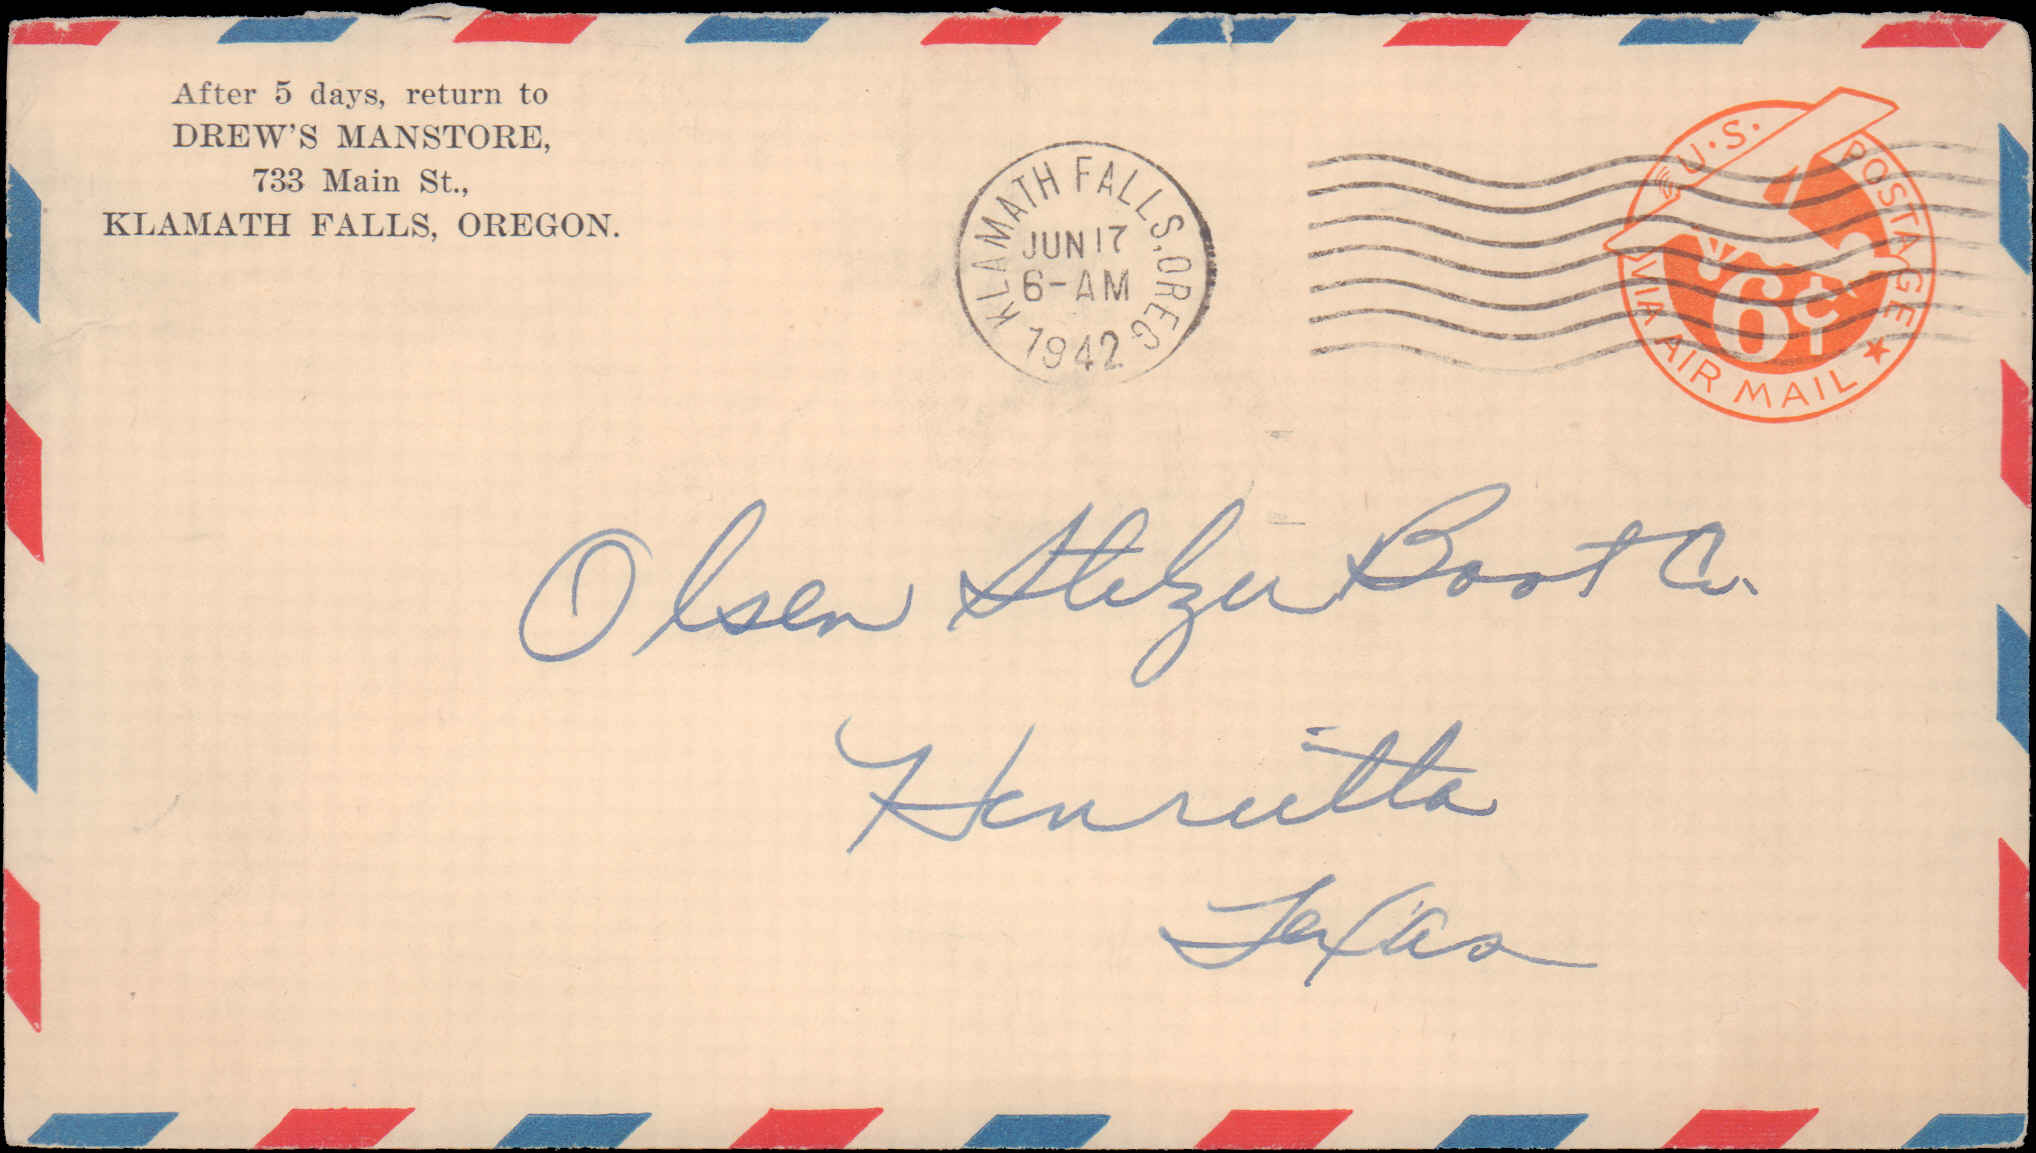 After 5 days, return to
DREW'S MANSTORE,
733 Main St.,
KLAMATH FALLS, OREGON.
KLAMATH FALLS, OREG
JUN 17
6-AM
1942
U.S. POSTAGE
6¢
VIA AIR MAIL
Olsen Stelzer Boot Co.
Henrietta
Texas